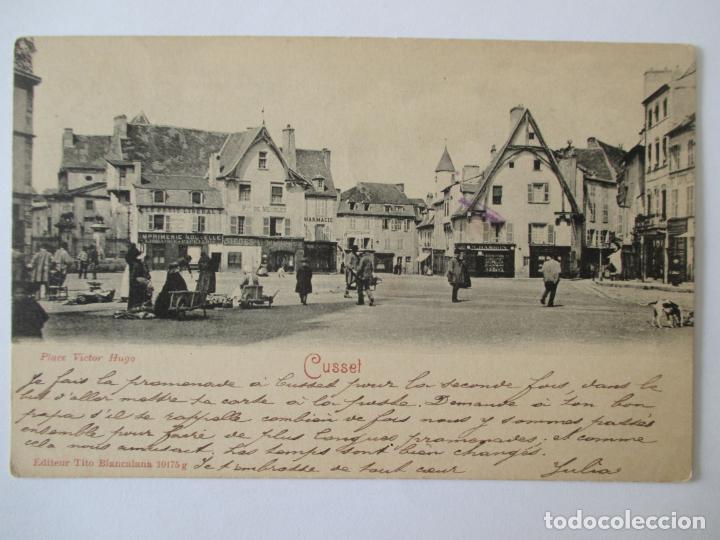 IMPRIMERIE NOUVELLE
PHARMACIE
Place Victor Hugo
Cusset
Je fais la promenade à Cusset pour la seconde fois, dans le
but d'aller mettre ta carte à la poste. Demande à ton bon
papa s'il se rappelle combien de fois nous y sommes passés
ensemble pour faire de plus longues promenades; et comme
cela nous amusait. Les temps sont bien changés.
Editeur Tito Biancalana 10175 g
Je t'embrasse de tout cœur Julia
todocoleccion.net